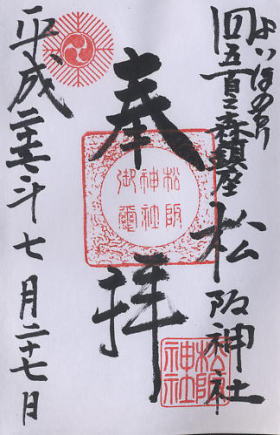 よいほのもり
四五百之森鎮座 松阪神社
奉拝
松阪
神社
御璽
松阪
神社
平成二十五年七月二十七日